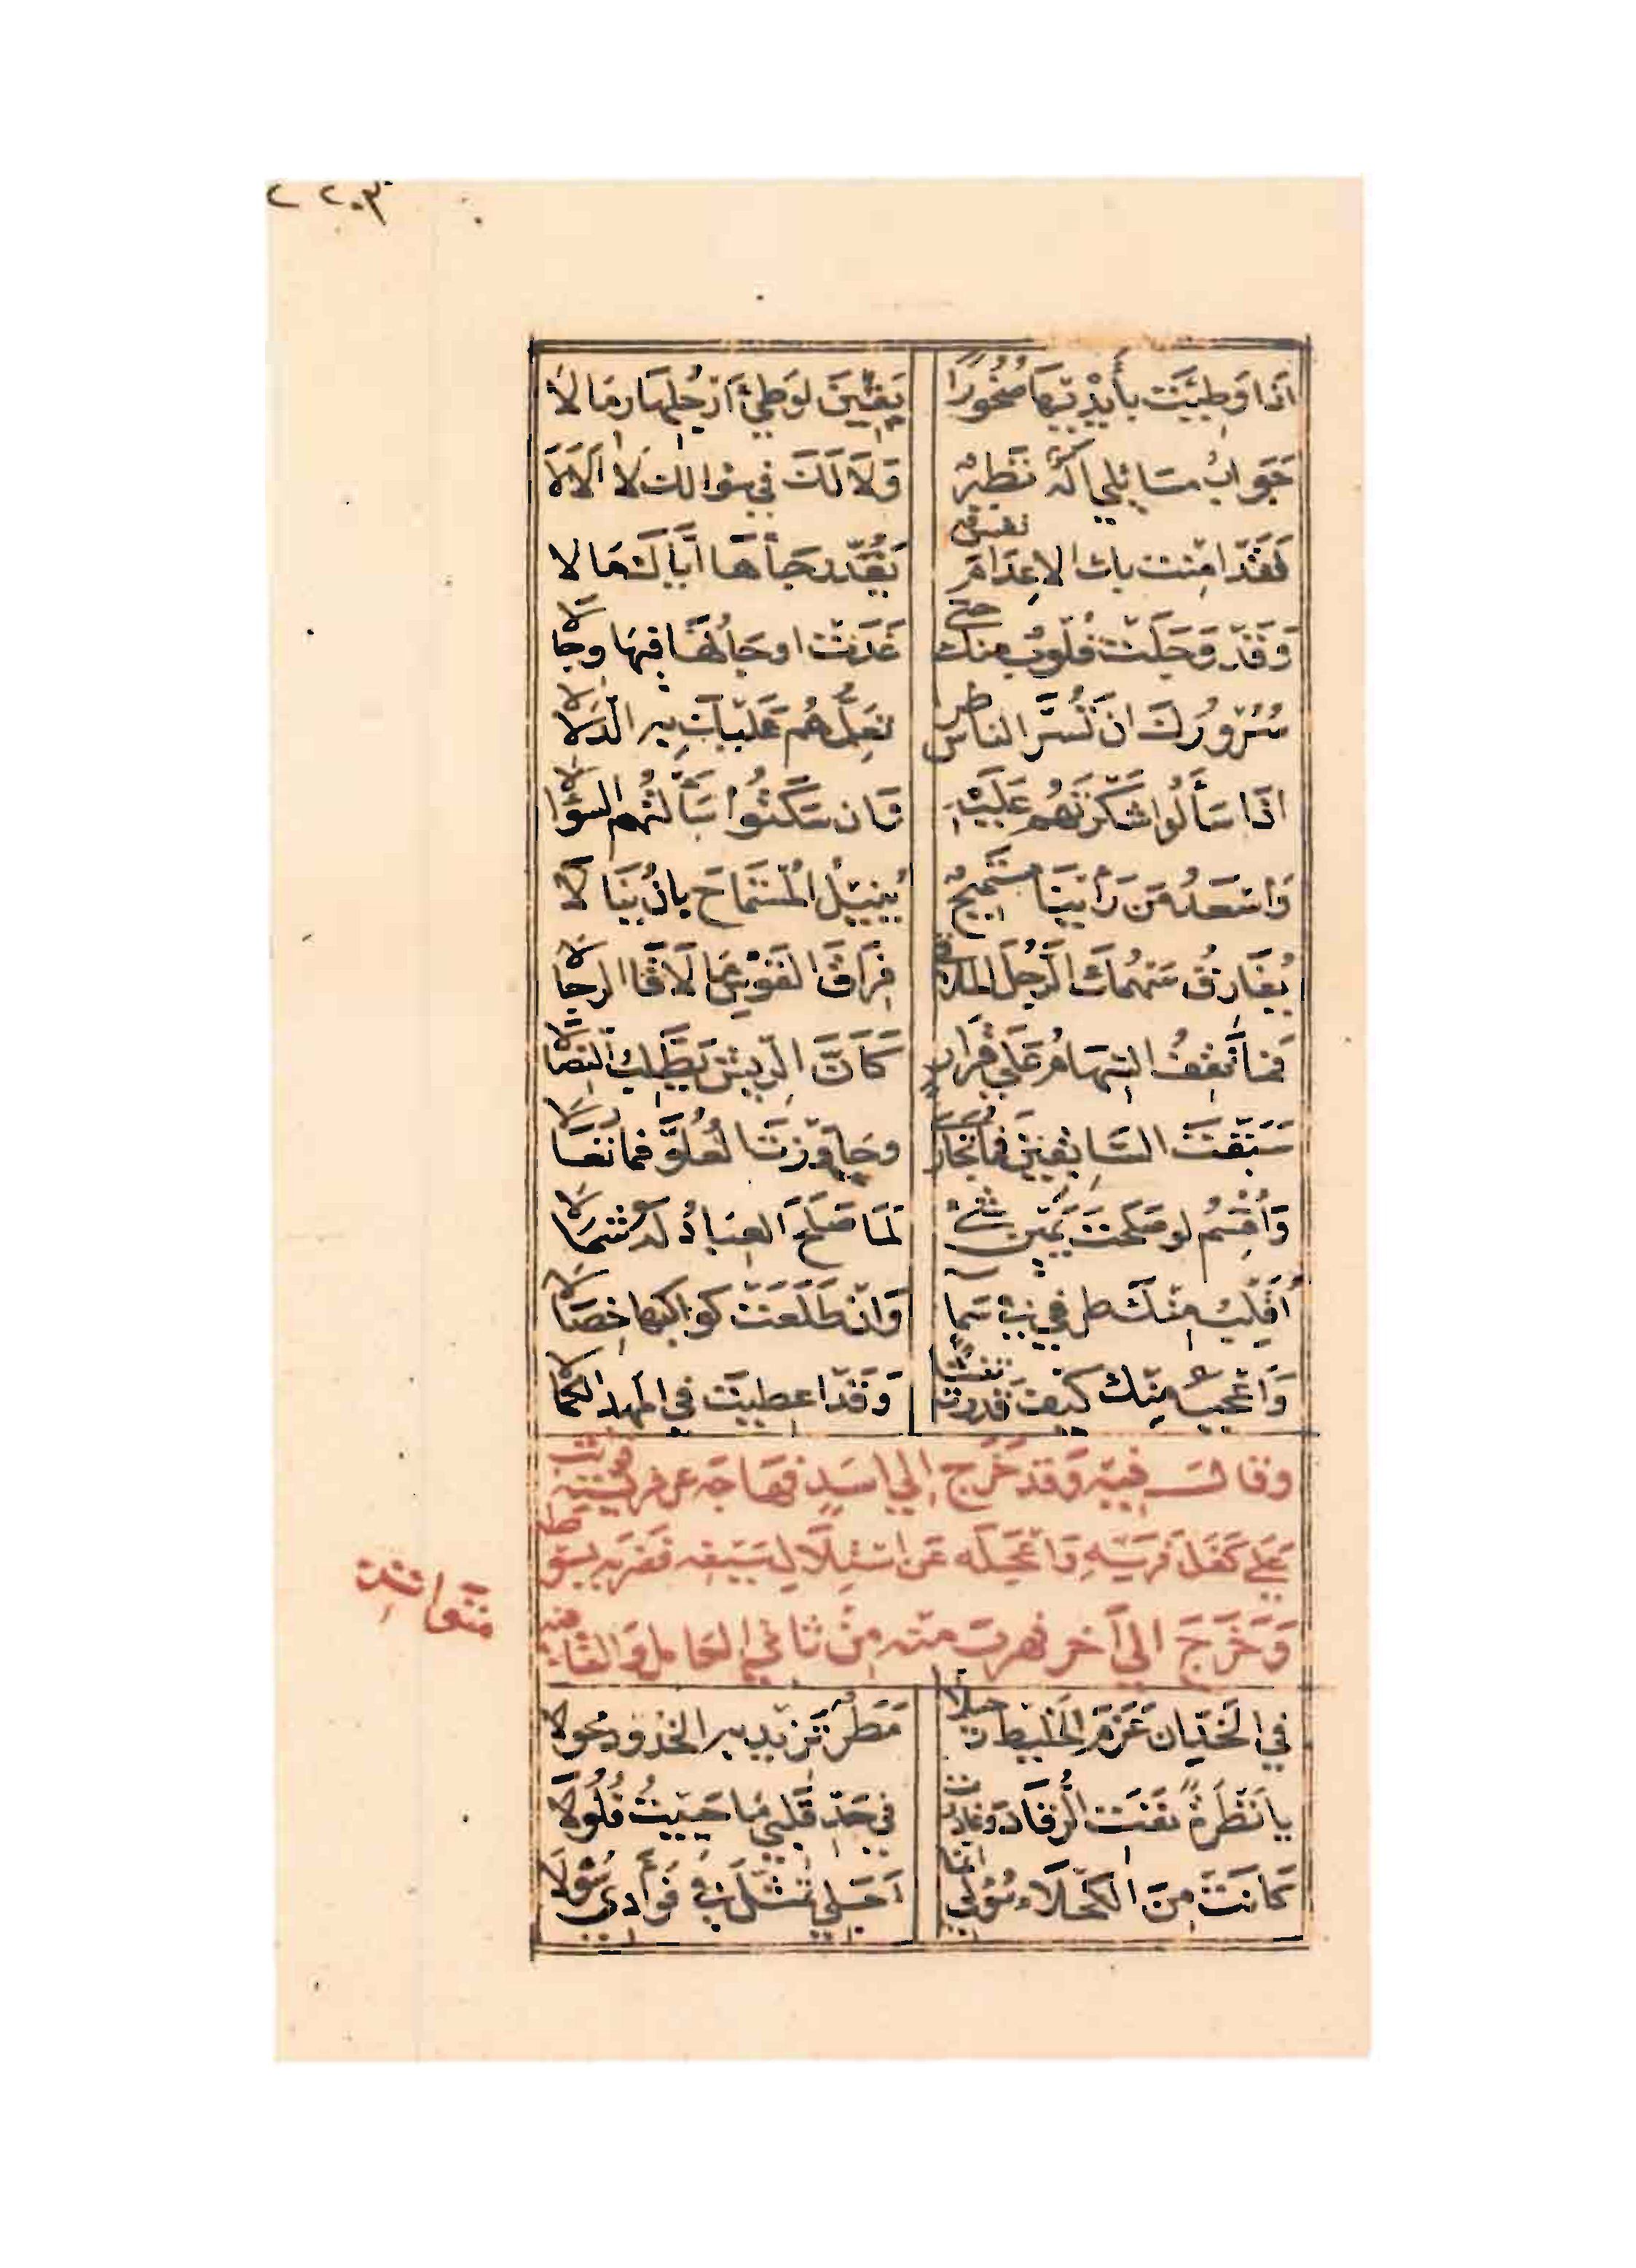 ٢٠٣
اذا وطِئَت بأيْديها صُخُورًا يَفِئْنَ لوَطِئ اَرْجُلِها رِمَالا
جَوابُ مسَائلي اَلَهُ نَظِيرٌ وَلاَ لَكَ في سؤالك لاَ اَلاَلاَ
لَقَدْ امِنت بك الاعِدَامَ نفسٌ تَعُدّ رجَاَها اياكَ مَالا
وَقَدْ وَجِلَتْ قُلُوبٌ منك حتى غَدَتْ اوجَالُهَا فيها وِجَالا
سُرُورُكَ انْ تَسُرَّ الناس طرا تعَلّمُهُم عَلَيكَ بِهِ الدَلالا
اذَا سَأَلُوا شَكَرْتَهُم عَلَيْهِ وَان سَكَتُوا سَأَلْتَهُم السُّؤالا
وَاسْعَدُ مَن رَأيْنَا مُسْتَمِيحٌ يُنِيلُ المُسْتَمَاحَ بان يَنَالا
يُفَارِقُ سَهْمُكَ الرَّجُلَ الملاقى فِرَاقَ القَوْسِ مَا لاَقَا الرجَالا
فَمَا تَقِفُ السِّهَامُ عَلى قَرَارٍ كَاَنَّ الرّيشَ يَطْلِبُ النِصَالا
سَبَقْتَ السَّابِقينَ فمَا تجارى وجَاوَزتَ العُلُوَّ فما تعَالا
وَأُقْسِمُ لو صَلَحتَ يَمينَ شئٍ لَمَا صَلَحَ العِبَادُ لَهُ شمَالا
أُقَلِّبُ مِنْكَ طرفي في سَما وَانْ طَلَعَتْ كواكبها خِصَالا
وَاعْجَبُ مِنْك كيفَ قدرت تنشا وَقَدْ اعطيتَ في المهد الكمالا
وقالَ فيهِ وَقَد خَرَج إلي اسَدٍ فهَاجَه عن فريسته فوثب
عَلي كَفَل فَرَسِهِ وَاعْجَلَه عَن اسْتِلاَلِ سَيْفِه فضَرَبه بسوطه
وَخَرَجَ الي آخر فهربَ منه مِنْ ثاني الكامل وَالقافية
متواتر
في الخَدِّ ان عَزَمَ الخَليط رحيلا مَطَرٌ تَزيد به الخُدود محولا
يا نَظْرَةً نفَتِ الرُّقَادَ وغادرت في حَدّ قَلبي مَا حَييتُ فُلُولا
كَانَتْ مِنَ الكَحْلاَءِ سُؤلي انما اَجَلي تمَثّلَ في فؤادي سُولا